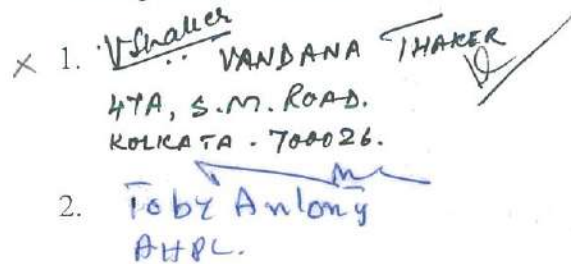 × 1. VThaker VANDANA THAKER
47A, S.M. ROAD.
KOLKATA - 700026.
2. Toby Antony
AHPL.